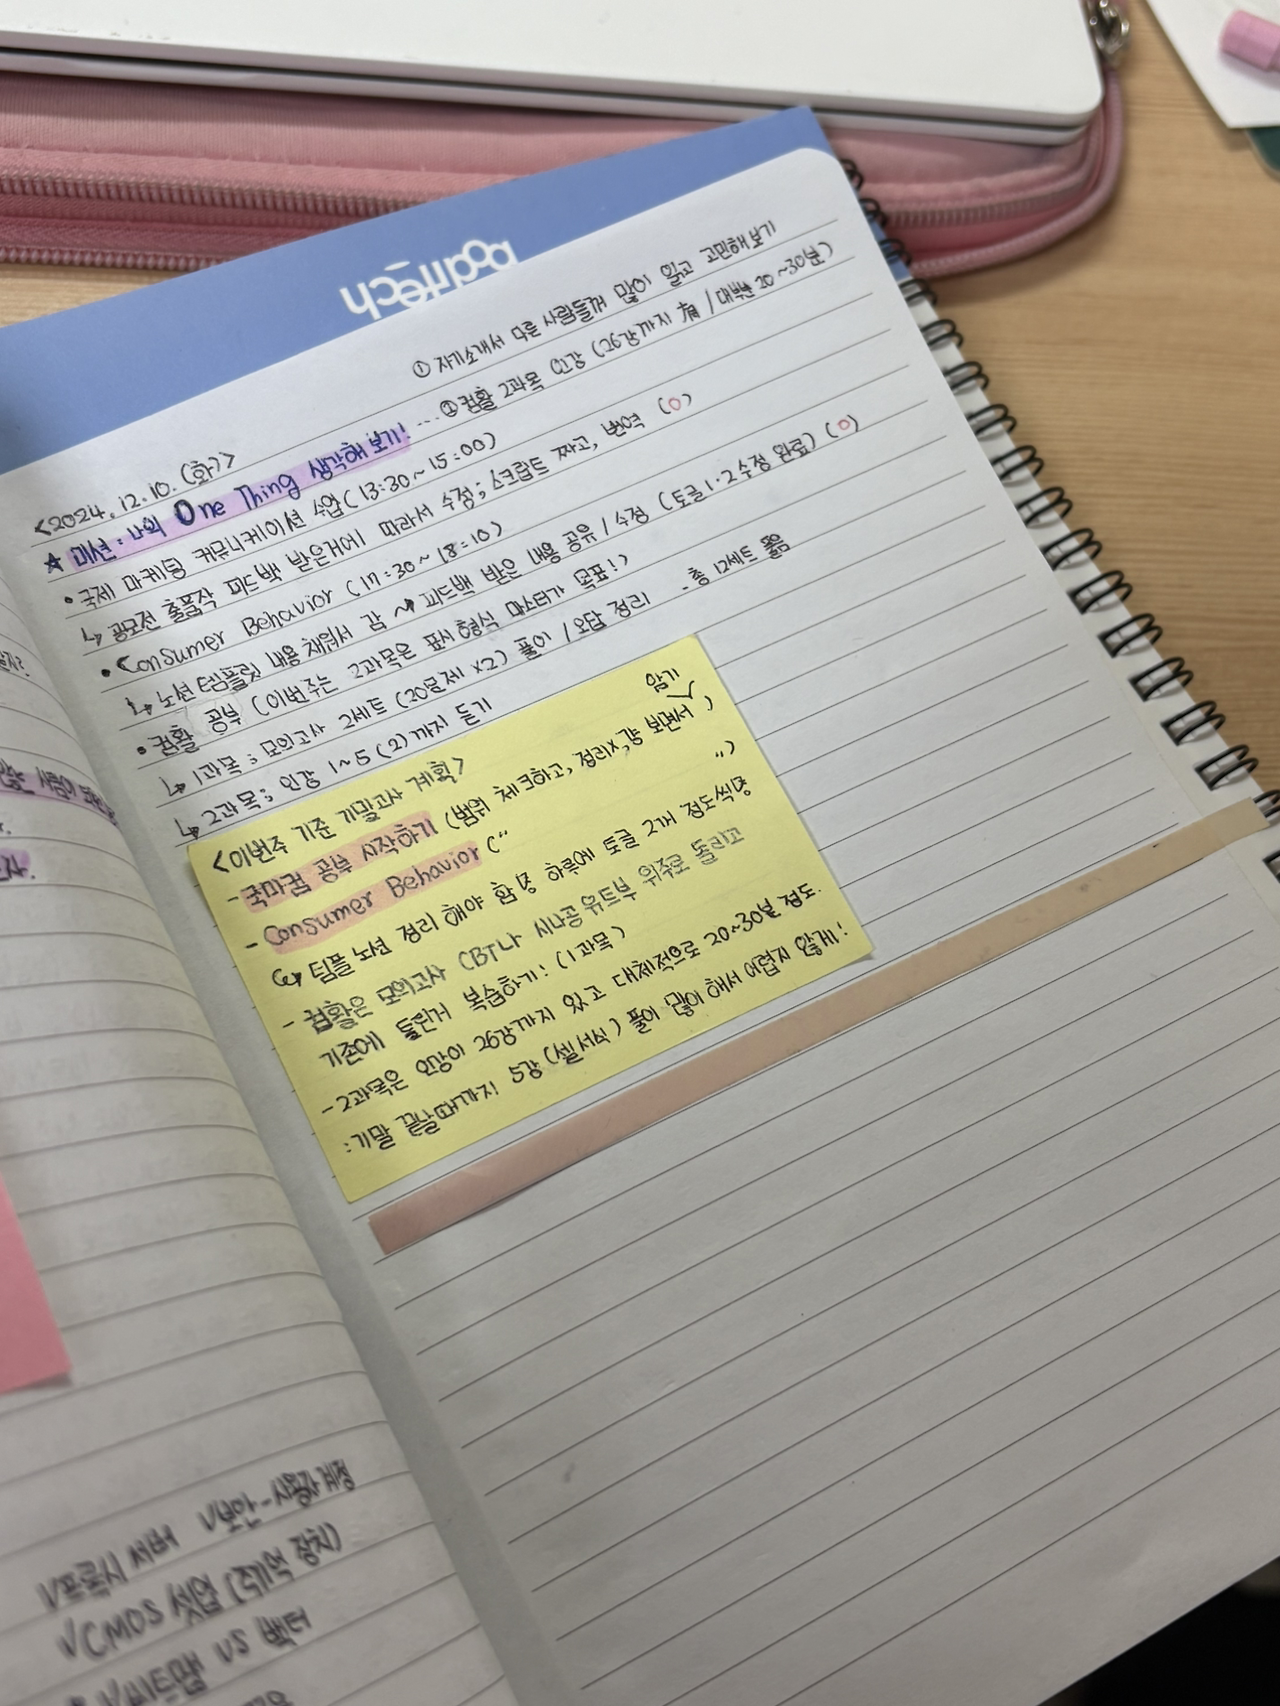 ① 자기소개서 다른 사람들꺼 많이 읽고 고민해보기
<2024. 12. 10. (화)>
★ 미션 : 나의 One Thing 생각해 보기! ... ② 컴활 2과목 인강 (26강까지 有 / 대부분 20~30분)
• 국제 마케팅 커뮤니케이션 수업 (13:30~15:00)
↳ 공모전 출품작 피드백 받은거에 따라서 수정 ; 스크립트 짜고, 번역 (O)
• Consumer Behavior (17:30~18:10)
↳ 노션 템플릿 내용 채워서 감 ~ 피드백 받은 내용 공유 / 수정 (토글 1·2 수정 완료) (O)
• 컴활 공부 (이번주는 2과목은 표시 형식 마스터가 목표!)
↳ 1과목 ; 모의고사 2세트 (20문제 x2) 풀이 / 오답 정리 - 총 12세트 풂
↳ 2과목 ; 인강 1~5 (2) 까지 듣기
<이번주 기준 기말고사 계획>
암기
- 국마컴 공부 시작하기 (범위 체크하고, 정리x, 걍 보면서)
- Consumer Behavior (" ")
↳ 팀플 노션 정리 해야 함 하루에 토글 2개 정도씩
- 컴활은 모의고사 CBT나 시나공 유튜브 위주로 돌리고
기존에 돌린거 복습하기! (1과목)
- 2과목은 인강이 26강까지 있고 대체적으로 20~30분 정도.
: 기말 끝날때까지 5강 (셀 서식) 풀이 많이 해서 어렵지 않게!
24.
V프록시 서버 V보안 - 사용자 계정
VCMOS 셋업 (주기억 장치)
V비트맵 vs 벡터